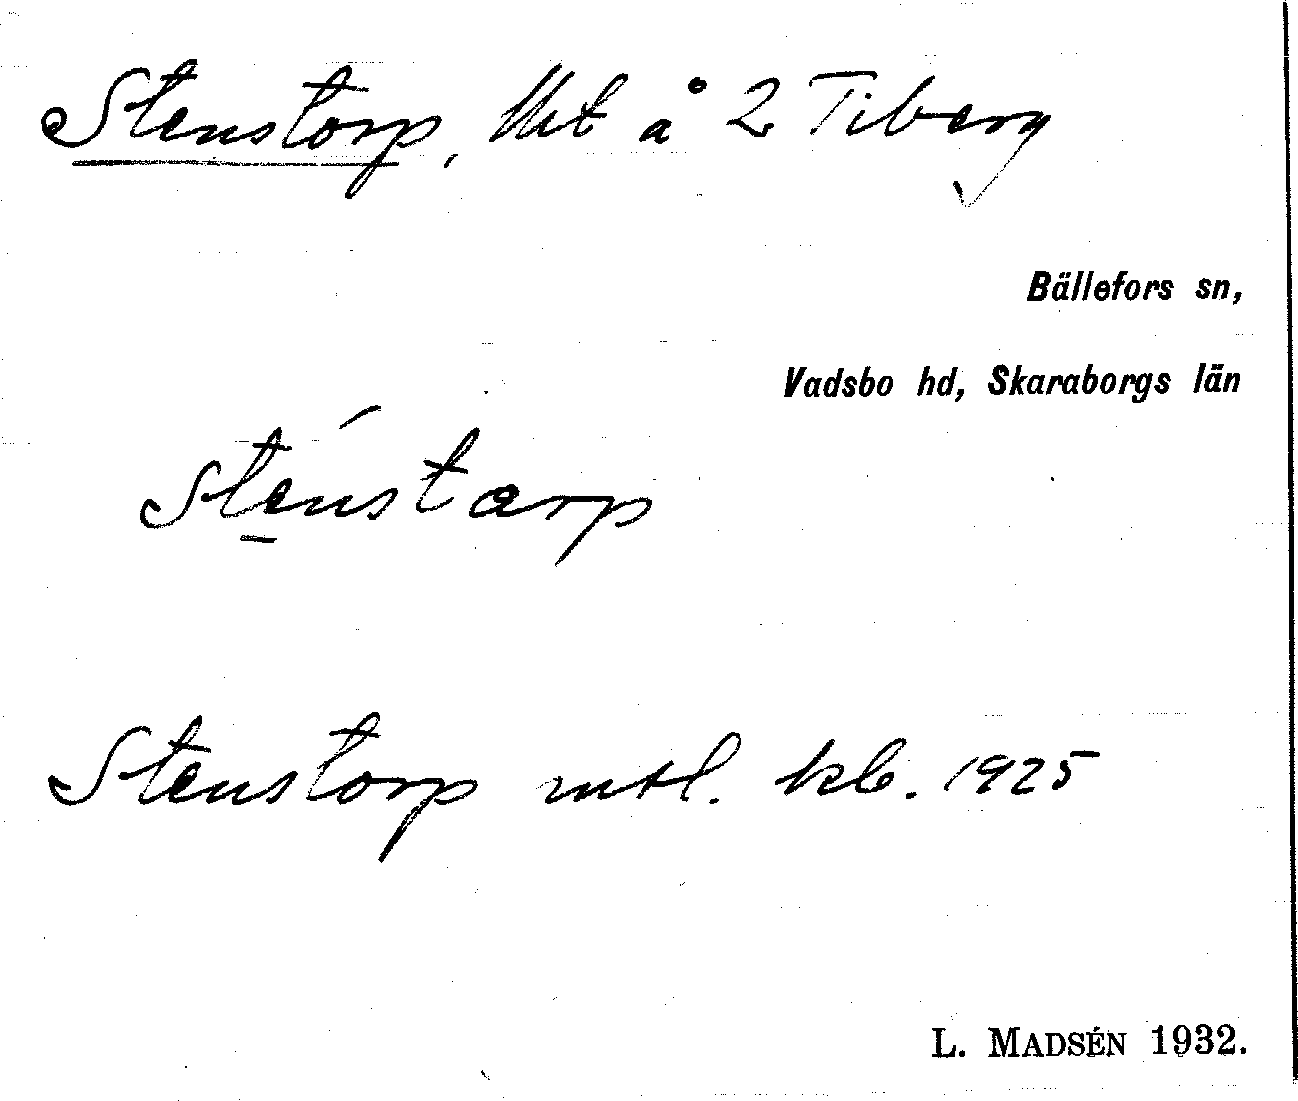 Stenstorp, Uht å 2 Tiberg
Bällefors sn,
Vadsbo hd, Skaraborgs län
sténstarp
Stenstorp mtl. kb. 1925
L. MADSÉN 1932.